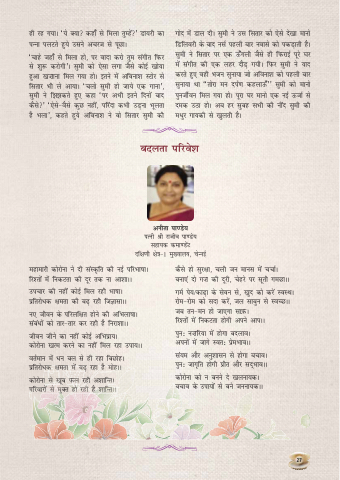 ही रह गया। 'ये क्या? कहाँ से मिला तुम्हें?' डायरी का
पन्ना पलटते हुये उसने अचरज से पूछा।
'चाहे जहाँ से मिला हो, पर वादा करो तुम संगीत फिर
से शुरू करोगी'। सुमी को ऐसा लगा जैसे कोई खोया
हुआ खजाना मिल गया हो। इतने में अविनाश स्टोर से
सितार भी ले आया। 'चलो सुमी हो जाये एक गाना',
सुमी ने झिझकते हुए कहा 'पर अभी इतने दिनों बाद
कैसे?' 'ऐसे-वैसे कुछ नहीं, परिंदा कभी उड़ना भूलता
है भला', कहते हुये अविनाश ने वो सितार सुमी की
गोद में डाल दी। सुमी ने उस सितार को ऐसे देखा मानो
डिलिवरी के बाद नर्स पहली बार नवासे को पकड़ाती है।
सुमी ने सितार पर एक ऊँगली जैसे ही फिराई पूरे घर
में संगीत की एक लहर दौड़ गयी। फिर सुमी ने याद
करते हुए वही भजन सुनाया जो अविनाश को पहली बार
सुनाया था "तोरा मन दर्पण कहलाऊँ" सुमी को मानो
पुनर्जीवन मिल गया हो। पूरा घर मानो एक नई ऊर्जा से
दमक उठा हो। अब हर सुबह सभी की नींद सुमी की
मधुर गायकी से खुलती है।
बदलता परिवेश
अनीता पाण्डेय
पत्नी श्री राजीव पाण्डेय
सहायक कमाण्डेंट
दक्षिणी क्षेत्र-I मुख्यालय, चेन्नई
महामारी कोरोना ने दी संस्कृति को नई परिभाषा।
रिश्तों में निकटता की दूर तक ना आशा॥
उपचार की नहीं कोई मिल रही भाषा।
प्रतिरोधक क्षमता की बढ़ रही जिज्ञासा॥
नए जीवन के परिलक्षित होने की अभिलाषा।
संबंधों को तार-तार कर रही है निराशा॥
जीवन जीने का नहीं कोई अभिप्राय।
कोरोना खत्म करने का नहीं मिल रहा उपाय॥
वर्तमान में धन बल से हो रहा बिछोह।
प्रतिरोधक क्षमता में बढ़ रहा है मोह॥
कोरोना से खूब फल रही अशान्ति।
परिवारों से मुक्त हो रही है शान्ति॥
कैसे हो सुरक्षा, चली जन मानस में चर्चा।
बनाएं दो गज की दूरी, चेहरे पर मुनी गमछा॥
गर्म पेय/काढ़ा के सेवन से, खुद को करें स्वस्थ।
रोम-रोम को सदा करें, जल साबुन से स्वच्छ॥
जब तन-मन हो जाएगा साफ़।
रिश्तों में निकटता होगी अपने आप॥
पुनः नजरिया में होगा बदलाव।
अपनों में जागे स्वतः प्रेमभाव॥
संयम और अनुशासन से होगा बचाव।
पुनः जागृति होगी प्रीत और सद्भाव॥
कोरोना को न बनने दे खलनायक।
बचाव के उपायों से बने जननायक॥
27